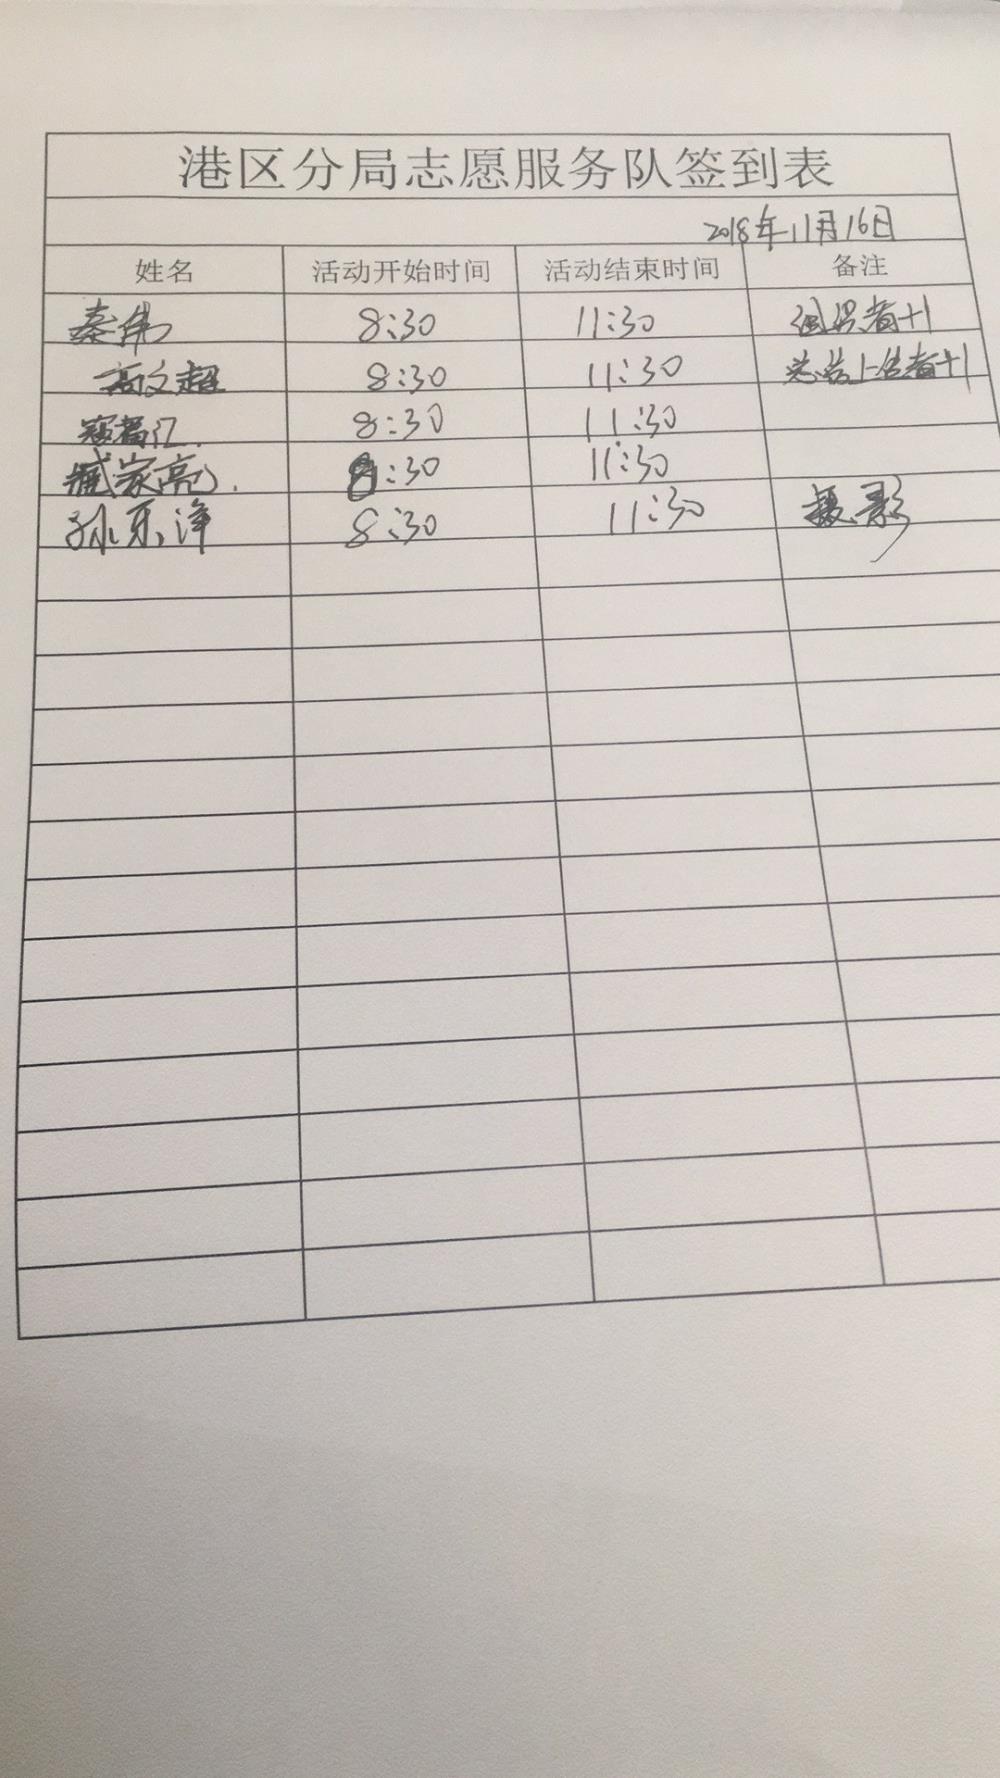 港区分局志愿服务队签到表
2018年11月16日
姓名 活动开始时间 活动结束时间 备注
秦伟 8:30 11:30 组织者+1
高文超 8:30 11:30 总结上传者+1
8:30 11:30
臧家亮 8:30 11:30
孙乐洋 8:30 11:30 摄影